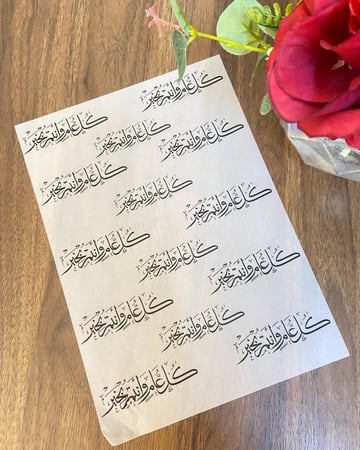 كل عام وانتم بخير
كل عام وانتم بخير
كل عام وانتم بخير
كل عام وانتم بخير
كل عام وانتم بخير
كل عام وانتم بخير
كل عام وانتم بخير
كل عام وانتم بخير
كل عام وانتم بخير
كل عام وانتم بخير
كل عام وانتم بخير
كل عام وانتم بخير
كل عام وانتم بخير
كل عام وانتم بخير